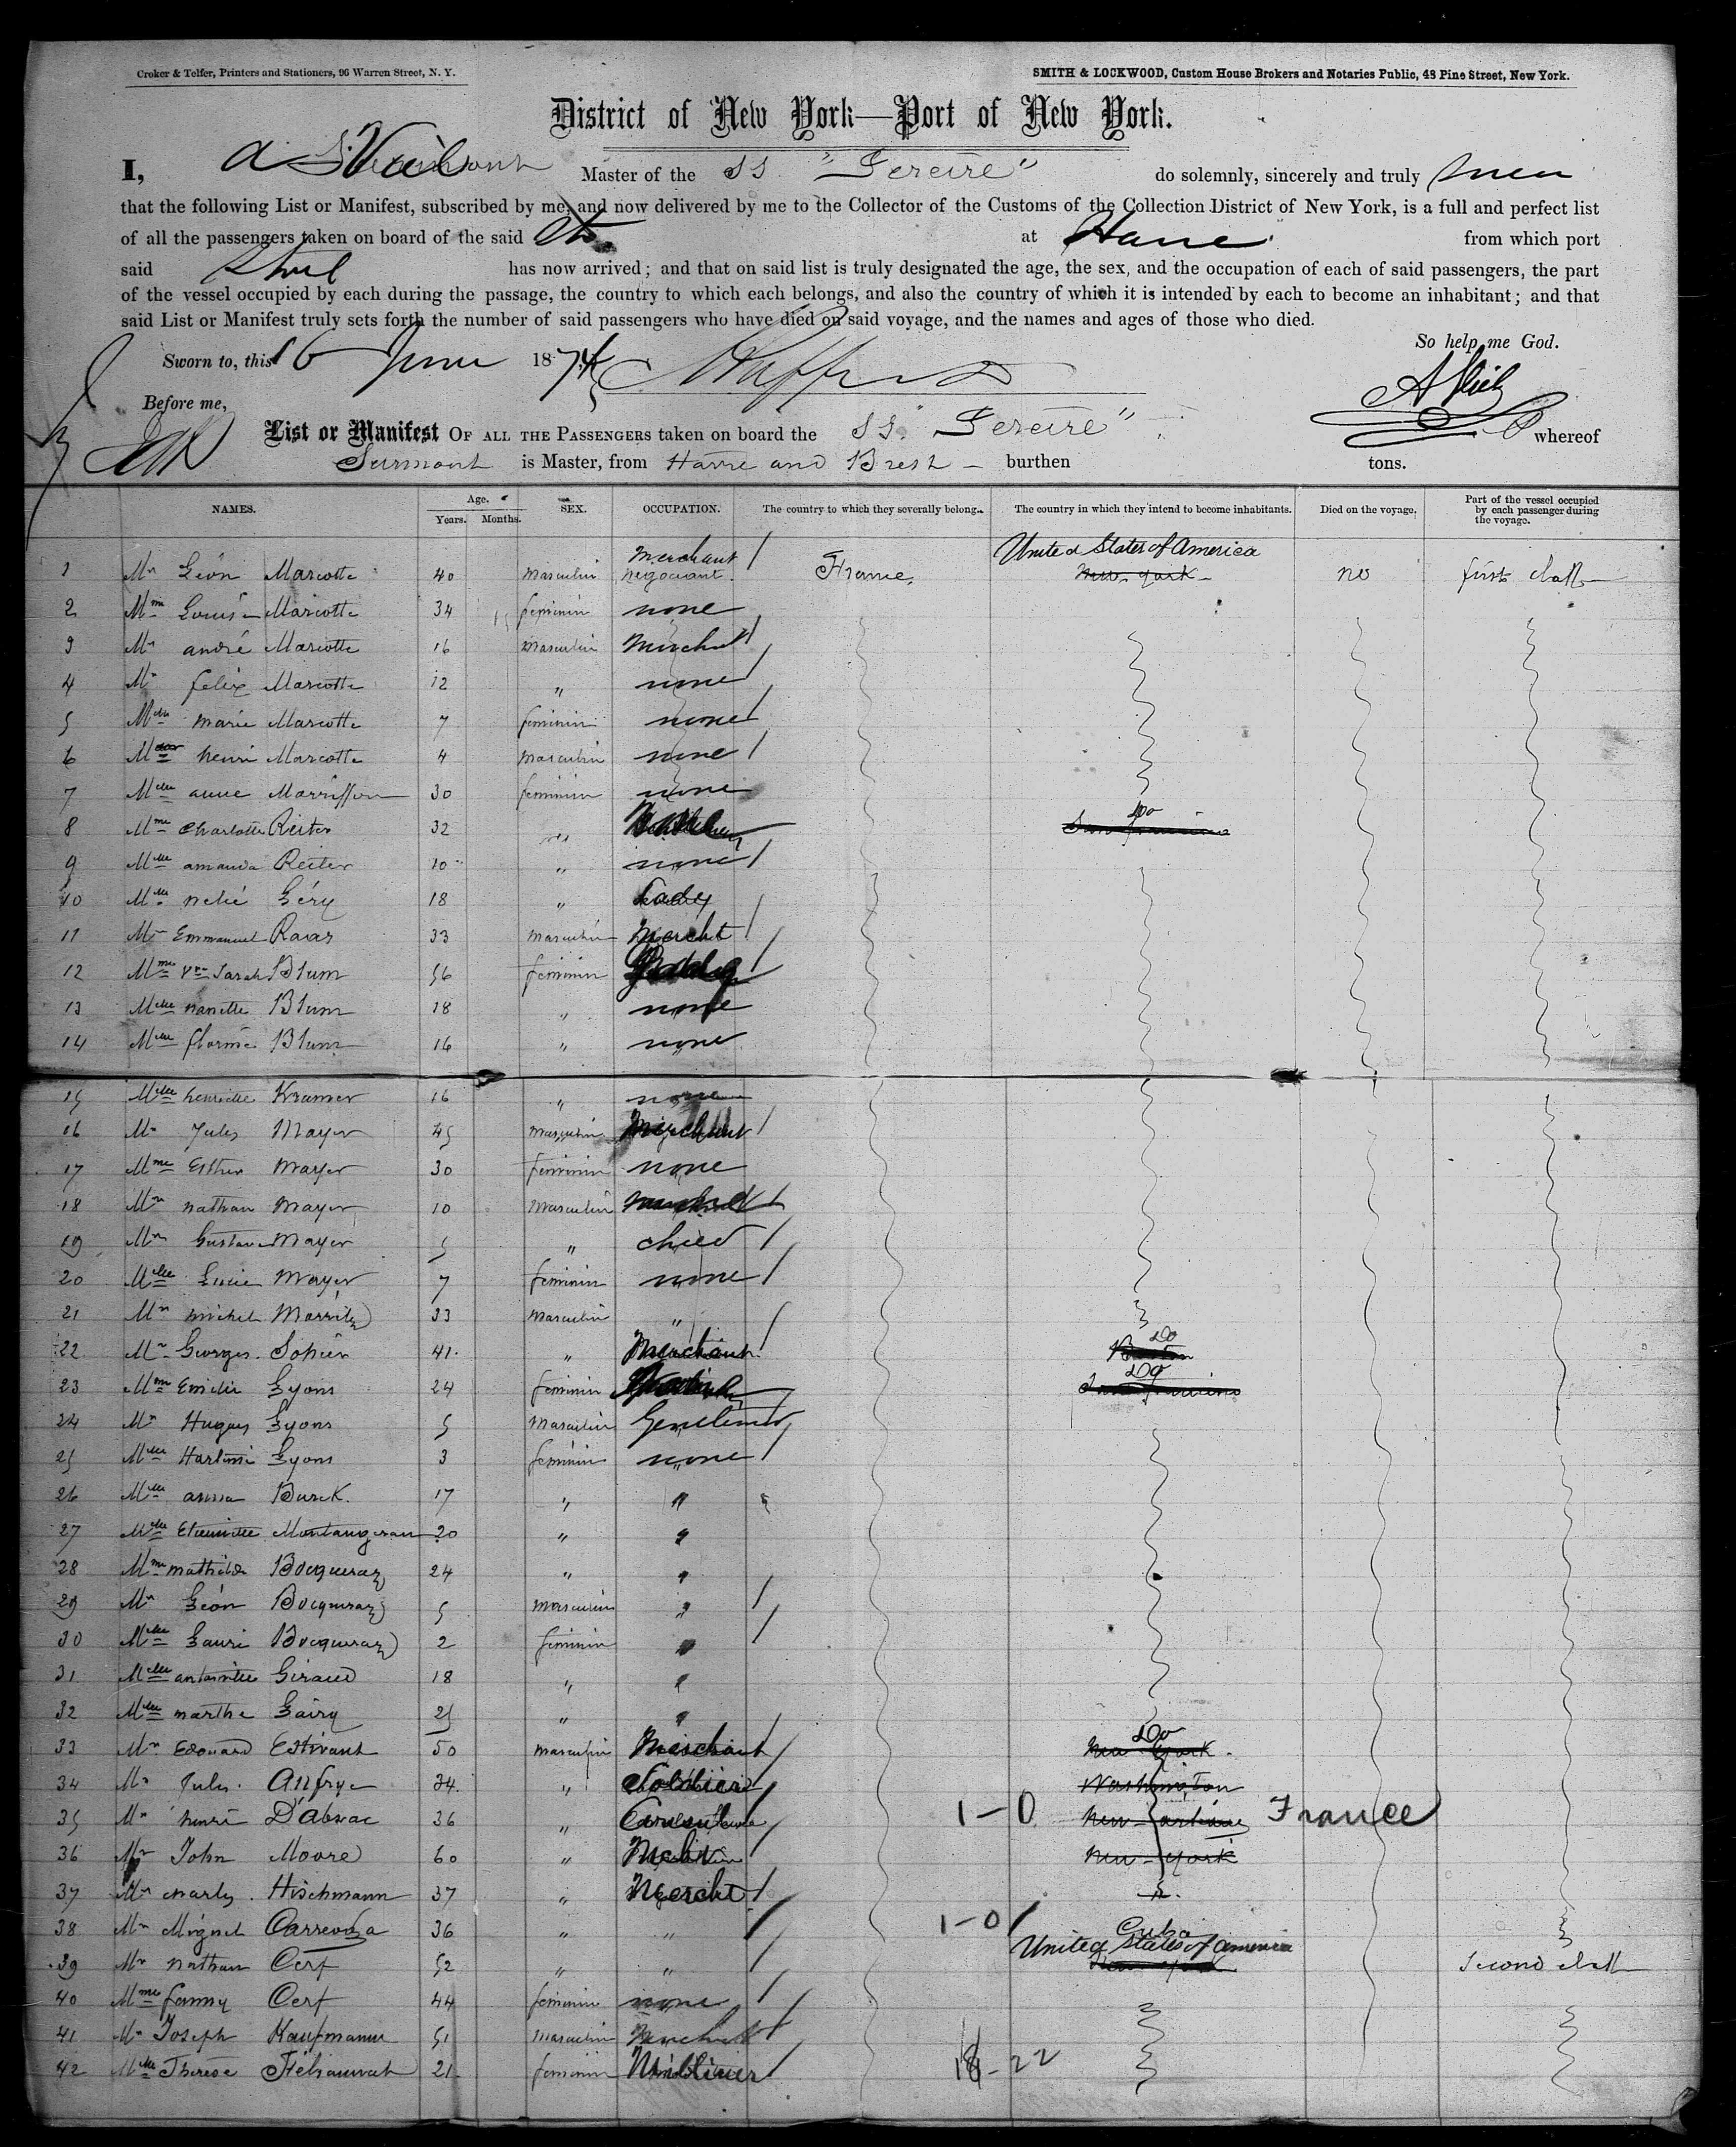 Croker & Telfer, Printers and Stationers, 96 Warren Street, N. Y.
SMITH & LOCKWOOD, Custom House Brokers and Notaries Public, 48 Pine Street, New York.
District of New York—Port of New York.
I, Master of the SS "Pereire" do solemnly, sincerely and truly swear
that the following List or Manifest, subscribed by me, and now delivered by me to the Collector of the Customs of the Collection District of New York, is a full and perfect list
of all the passengers taken on board of the said at Havre from which port
said has now arrived; and that on said list is truly designated the age, the sex, and the occupation of each of said passengers, the part
of the vessel occupied by each during the passage, the country to which each belongs, and also the country of which it is intended by each to become an inhabitant; and that
said List or Manifest truly sets forth the number of said passengers who have died on said voyage, and the names and ages of those who died.
So help me God.
Sworn to, this 16 June 1874
Before me,
List or Manifest OF ALL THE PASSENGERS taken on board the SS. "Pereire" whereof
Surmont is Master, from Havre and Brest burthen tons.
NAMES. Age. Years. Months. SEX. OCCUPATION. The country to which they severally belong. The country in which they intend to become inhabitants. Died on the voyage. Part of the vessel occupied by each passenger during the voyage.
United States of America
Merchant
1 Mr Léon Marcotte 40 masculin negociant France, New-York no first class
2 Mme Louise Marcotte 34 feminin none
3 Mr andré Marcotte 16 masculin Merchant
4 Mr felix Marcotte 12 " none
5 Melle marie Marcotte 7 feminin none
6 M henri Marcotte 4 masculin none
7 Melle anne 30 feminin none
8 Mme Charlotte Reiter 32 " Do San francisco
9 Melle amanda Reiter 10 " none
10 Melle Géry 18 " Lady
11 Mr Emmanuel 33 masculin Mercht
12 Mme Vve Sarah Blum 56 feminin
13 Melle nanette Blum 18 " none
14 Melle florine Blum 16 " none
15 Melle henriette Kramer 16 " none
16 Mr Jules Mayer 45 masculin Merchant
17 Mme Esther Mayer 30 feminin none
18 Mr nathan Mayer 10 masculin
19 Mr Gustave Mayer 5 " child
20 Melle Lucie Mayer 7 feminin none
21 Mr michel 33 masculin "
22 Mr Georges 41 " Merchant Do Boston
23 Mme Emilie Lyons 24 feminin Do San francisco
24 Mr Hugues Lyons 5 masculin Gentleman
25 Melle Lyons 3 feminin none
26 Melle anna Burck. 17 " "
27 Melle 20 " "
28 Mme mathilde Bocqueraz 24 " "
29 Mr Léon Bocqueraz 5 masculin "
30 Melle Laure Bocqueraz 2 feminin "
31 Melle antoinette Giraud 18 " "
32 Melle marthe 25 " "
33 Mr Edouard Estivant 50 masculin Merchant Do New York
34 Mr Jules Anfrye 34 " Soldier Washington
35 Mr henri D'Abzac 36 " 1-0 New-orléans France
36 Mr John Moore 60 " New-York
37 Mr charles Hischmann 37 " Mercht
38 Mr Miguel 36 " " 1-0 Cuba
United States of America
39 Mr nathan Cerf 52 " " second class
40 Mme fanny Cerf 44 feminin none
41 Mr Joseph Kaufmann 51 masculin Merchant
42 Melle Therese 21 feminin Milliner 22